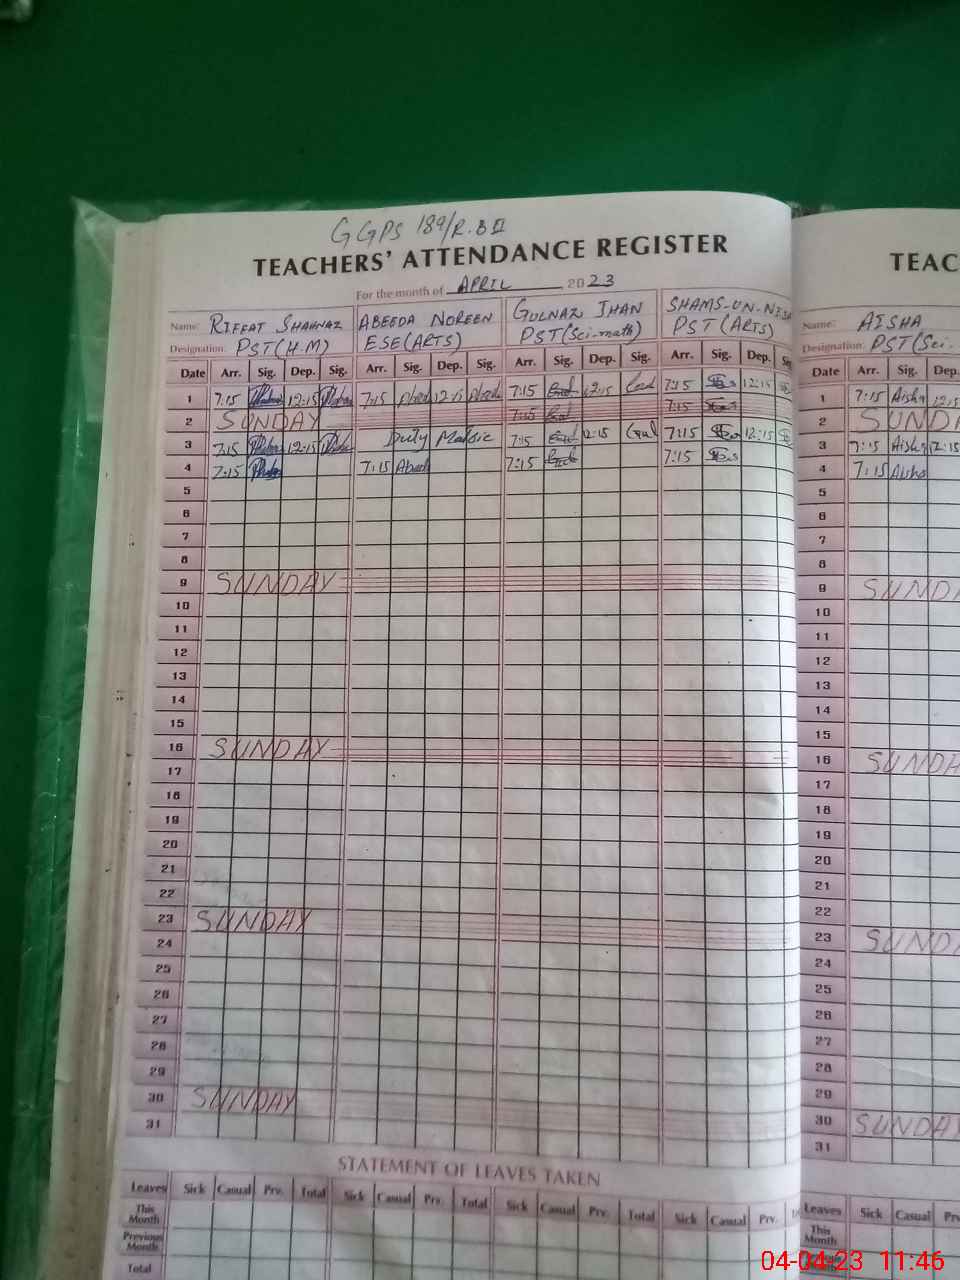 GGPS 189/R.B II
TEACHERS' ATTENDANCE REGISTER
For the month of APRIL 2023
Name: RIFFAT SHAHNAZ ABEEDA NOREEN GULNAZ JHAN SHAMS-UN-NISA
Designation: PST(H.M) ESE(ARTS) PST(Sci-math) PST(ARTS)
Date Arr. Sig. Dep. Sig. Arr. Sig. Dep. Sig. Arr. Sig. Dep. Sig. Arr. Sig. Dep. Sig.
1 7:15 12:15 7:15 Abeeda 12:15 Abeeda 7:15 Gul 12:15 Gul 7:15 12:15
2 SUNDAY 7:15 Gul 7:15
3 7:15 12:15 Duty 7:15 Gul 12:15 Gul 7:15 12:15
4 7:15 7:15 Abeeda 7:15 Gul 7:15
5
6
7
8
9 SUNDAY
10
11
12
13
14
15
16 SUNDAY
17
18
19
20
21
22
23 SUNDAY
24
25
26
27
28
29
30 SUNDAY
31
STATEMENT OF LEAVES TAKEN
Leaves Sick Casual Prv. Total Sick Casual Prv. Total Sick Casual Prv. Total Sick Casual Prv.
This Month
Previous Month
Total
TEAC
Name: AISHA
Designation: PST(Sci-
Date Arr. Sig. Dep.
1 7:15 Aisha 12:15
2 SUNDA
3 7:15 Aisha 12:15
4 7:15 Aisha
5
6
7
8
9 SUNDA
10
11
12
13
14
15
16 SUNDA
17
18
19
20
21
22
23 SUNDA
24
25
26
27
28
29
30 SUNDAY
31
Leaves Sick Casual Prv
This Month
Previous Month
Total
04-04-23 11:46